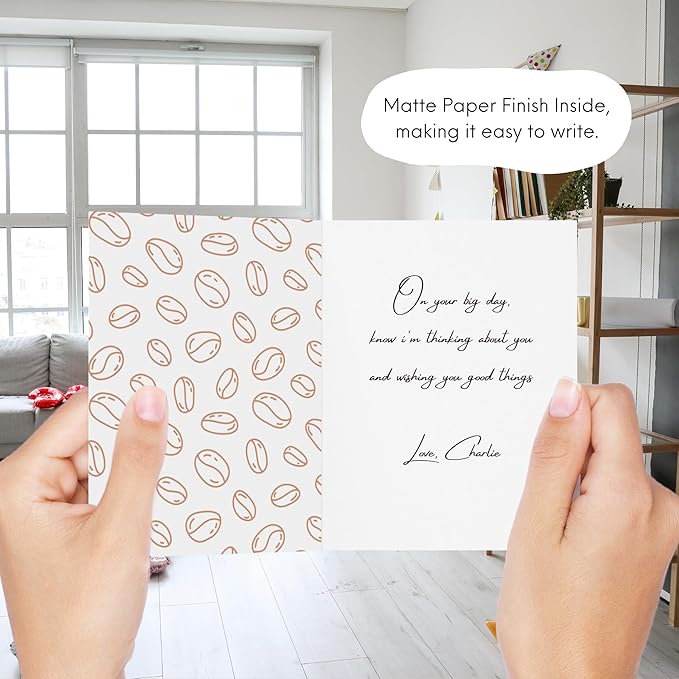 Matte Paper Finish Inside,
making it easy to write.
On your big day,
know i'm thinking about you
and wishing you good things
Love, Charlie